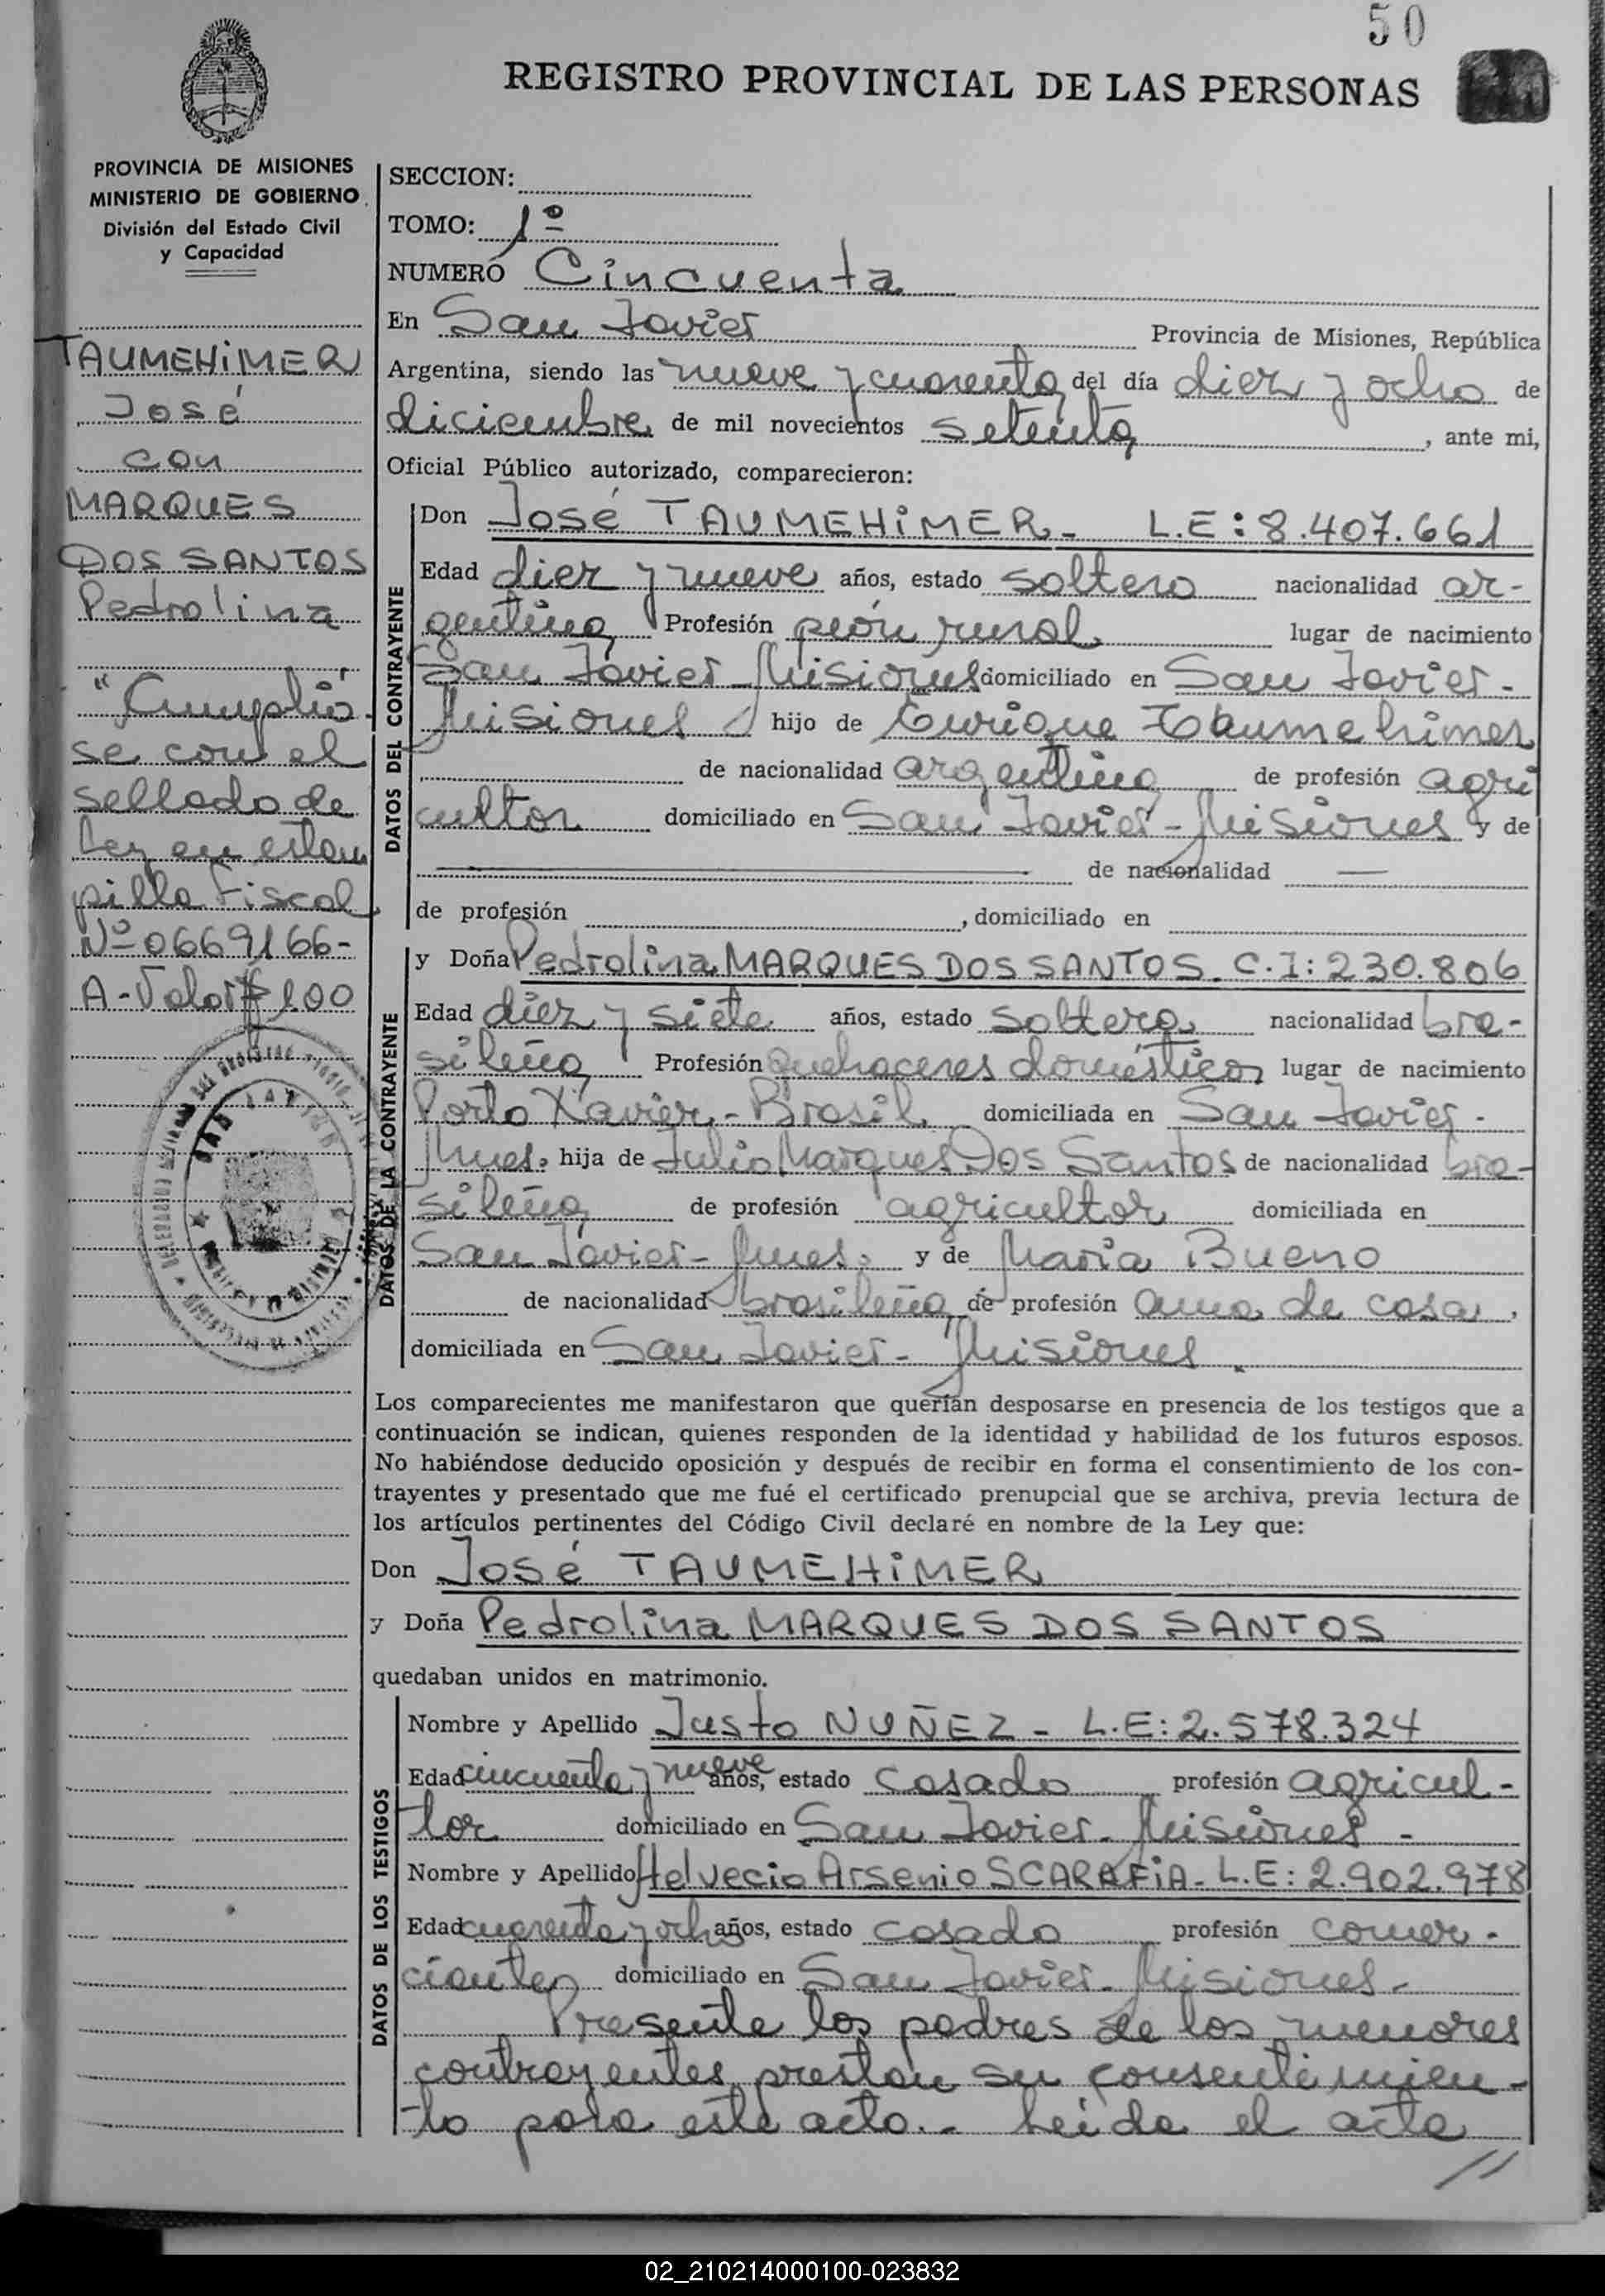 50
REGISTRO PROVINCIAL DE LAS PERSONAS
PROVINCIA DE MISIONES
MINISTERIO DE GOBIERNO
División del Estado Civil
y Capacidad
TAUMEHiMER
José
con
MARQUES
DOS SANTOS
Pedrolina
"Cumplió
se con el
sellado de
Ley en estam
pilla Fiscal
Nº 0669166-
A-Valor $ 100
SECCION:
TOMO: 1º
NUMERO Cincuenta
En San Javier Provincia de Misiones, República
Argentina, siendo las nueve y cuarenta del día diez y ocho de
diciembre de mil novecientos setenta, ante mi,
Oficial Público autorizado, comparecieron:
DATOS DEL CONTRAYENTE
Don José TAUMEHiMER- L.E: 8.407.661
Edad diez y nueve años, estado soltero nacionalidad ar-
gentina Profesión peón rural lugar de nacimiento
San Javier-Misiones domiciliado en San Javier-
Misiones hijo de Enrique Taumehimer
de nacionalidad argentina de profesión agri
cultor domiciliado en San Javier-Misiones y de
de nacionalidad
de profesión , domiciliado en
DATOS DE LA CONTRAYENTE
y Doña Pedrolina MARQUES DOS SANTOS. C.I: 230.806
Edad diez y siete años, estado soltera nacionalidad bra-
sileña Profesión quehaceres domésticos lugar de nacimiento
Porto Xavier-Brasil domiciliada en San Javier-
Mnes. hija de Julio Marques Dos Santos de nacionalidad bra-
sileña de profesión agricultor domiciliada en
San Javier-Mnes. y de María Bueno
de nacionalidad brasileña de profesión ama de casa,
domiciliada en San Javier-Misiones.
Los comparecientes me manifestaron que querían desposarse en presencia de los testigos que a
continuación se indican, quienes responden de la identidad y habilidad de los futuros esposos.
No habiéndose deducido oposición y después de recibir en forma el consentimiento de los con-
trayentes y presentado que me fué el certificado prenupcial que se archiva, previa lectura de
los artículos pertinentes del Código Civil declaré en nombre de la Ley que:
Don José TAUMEHiMER
y Doña Pedrolina MARQUES DOS SANTOS
quedaban unidos en matrimonio.
DATOS DE LOS TESTIGOS
Nombre y Apellido Justo NUÑEZ - L.E: 2.578.324
Edad cincuenta y nueve años, estado casado profesión agricul-
tor domiciliado en San Javier-Misiones-
Nombre y Apellido Helvecio Arsenio SCARAFiA- L.E: 2.902.978
Edad cuarenta y ocho años, estado casado profesión comer-
ciante domiciliado en San Javier-Misiones-
Presente los padres de los menores
contrayentes prestan su consentimien-
to para este acto.- Leida el acta
//
02_210214000100-023832